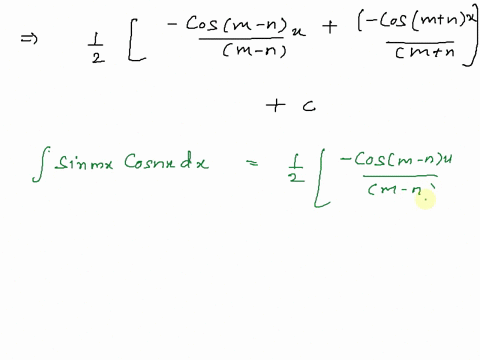 ⇒ 1/2 [ -Cos(m-n)x/(m-n) + (-Cos(m+n)x/(m+n ]
+ c
∫ Sinmx Cosnx dx = 1/2 [ -Cos(m-n)x/(m-n)